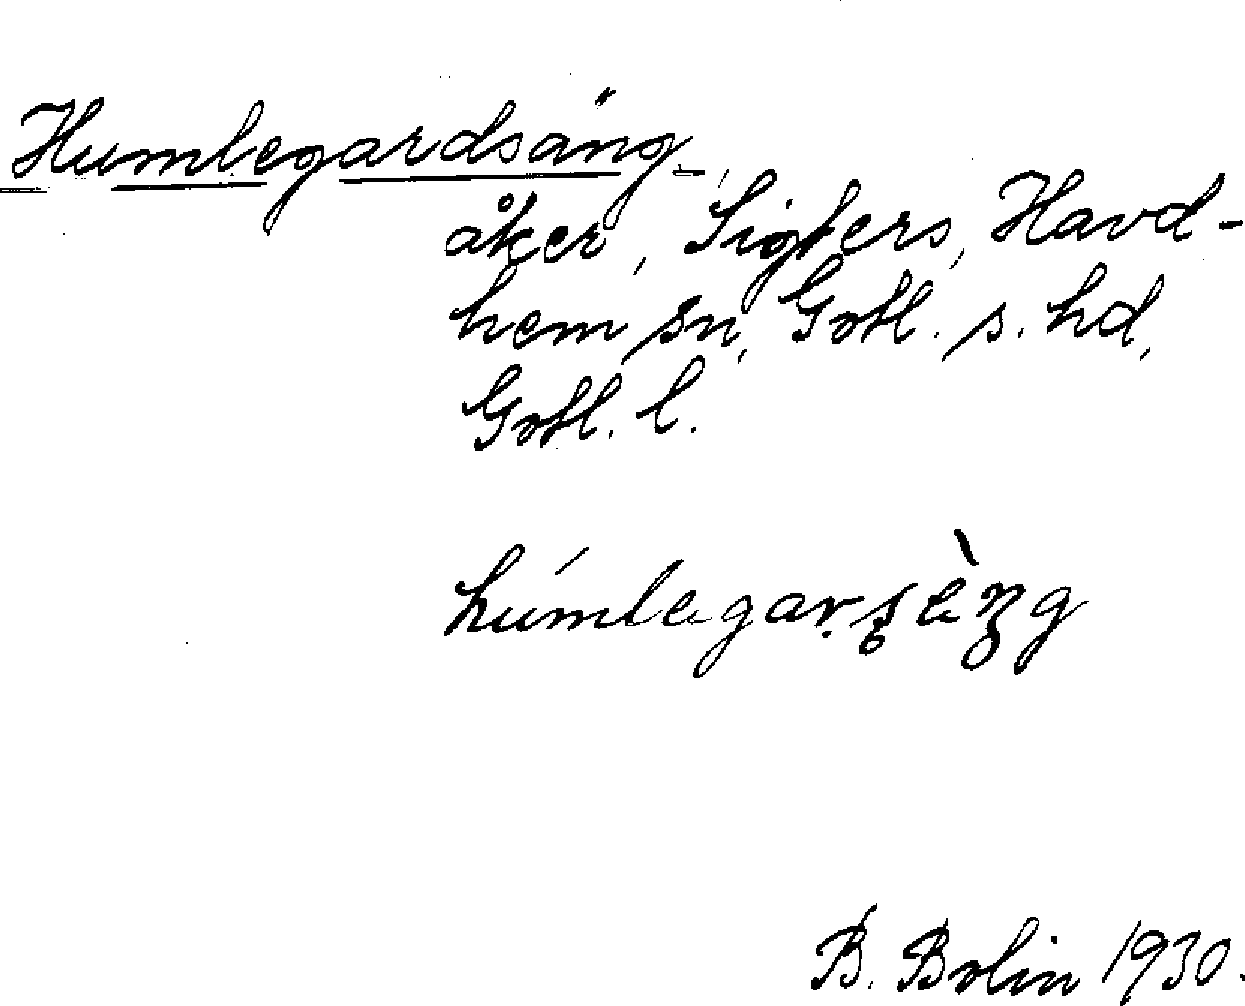 Humlegardsäng
åker, Sigfers, Havd-
hem sn, Gotl. s. hd,
Gotl. l.
B. Bolin 1930.